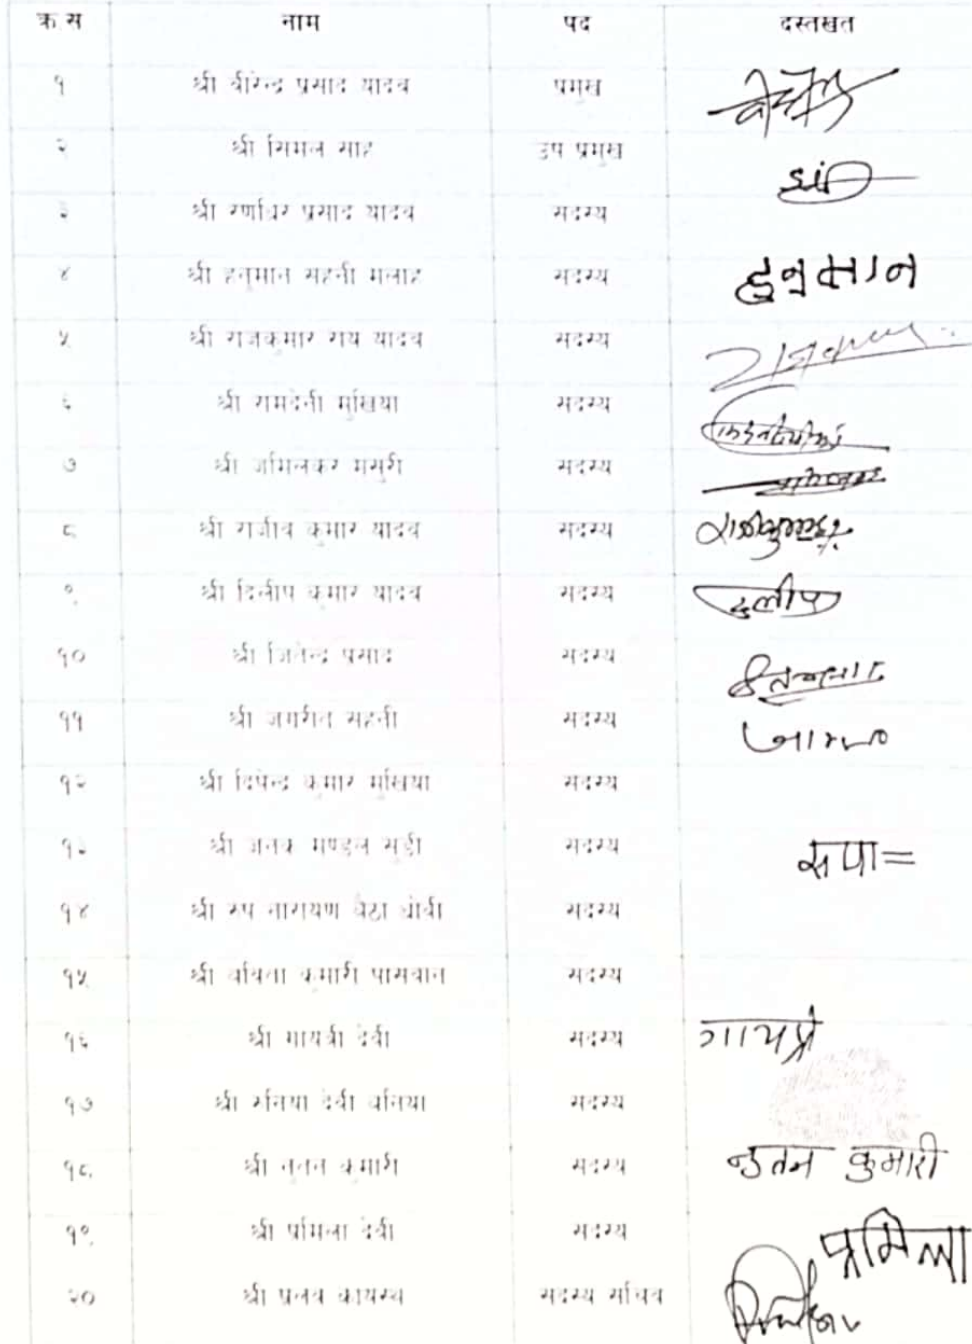 क्र.स नाम पद दस्तखत
१ श्री वीरेन्द्र प्रसाद यादव प्रमुख
२ श्री सिमल साह उप प्रमुख
३ श्री रणधिर प्रसाद यादव सदस्य
४ श्री हनुमान सहनी मलाह सदस्य हनुमान
५ श्री राजकुमार राय यादव सदस्य
६ श्री रामदेनी मुखिया सदस्य
७ श्री जमिलकर मसुरी सदस्य
८ श्री राजीव कुमार यादव सदस्य
९ श्री दिलीप कुमार यादव सदस्य दलीप
१० श्री जितेन्द्र प्रसाद सदस्य
११ श्री जगरीत सहनी सदस्य
१२ श्री दिपेन्द्र कुमार मुखिया सदस्य
१३ श्री जनक मण्डल सुडी सदस्य
१४ श्री रुप नारायण बैठा धोबी सदस्य
१५ श्री बबिता कुमारी पासवान सदस्य
१६ श्री गायत्री देवी सदस्य
१७ श्री रुनिया देवी बनिया सदस्य
१८ श्री नुतन कुमारी सदस्य नुतन कुमारी
१९ श्री प्रमिला देवी सदस्य प्रमिला
२० श्री प्रलव कायस्थ सदस्य सचिव